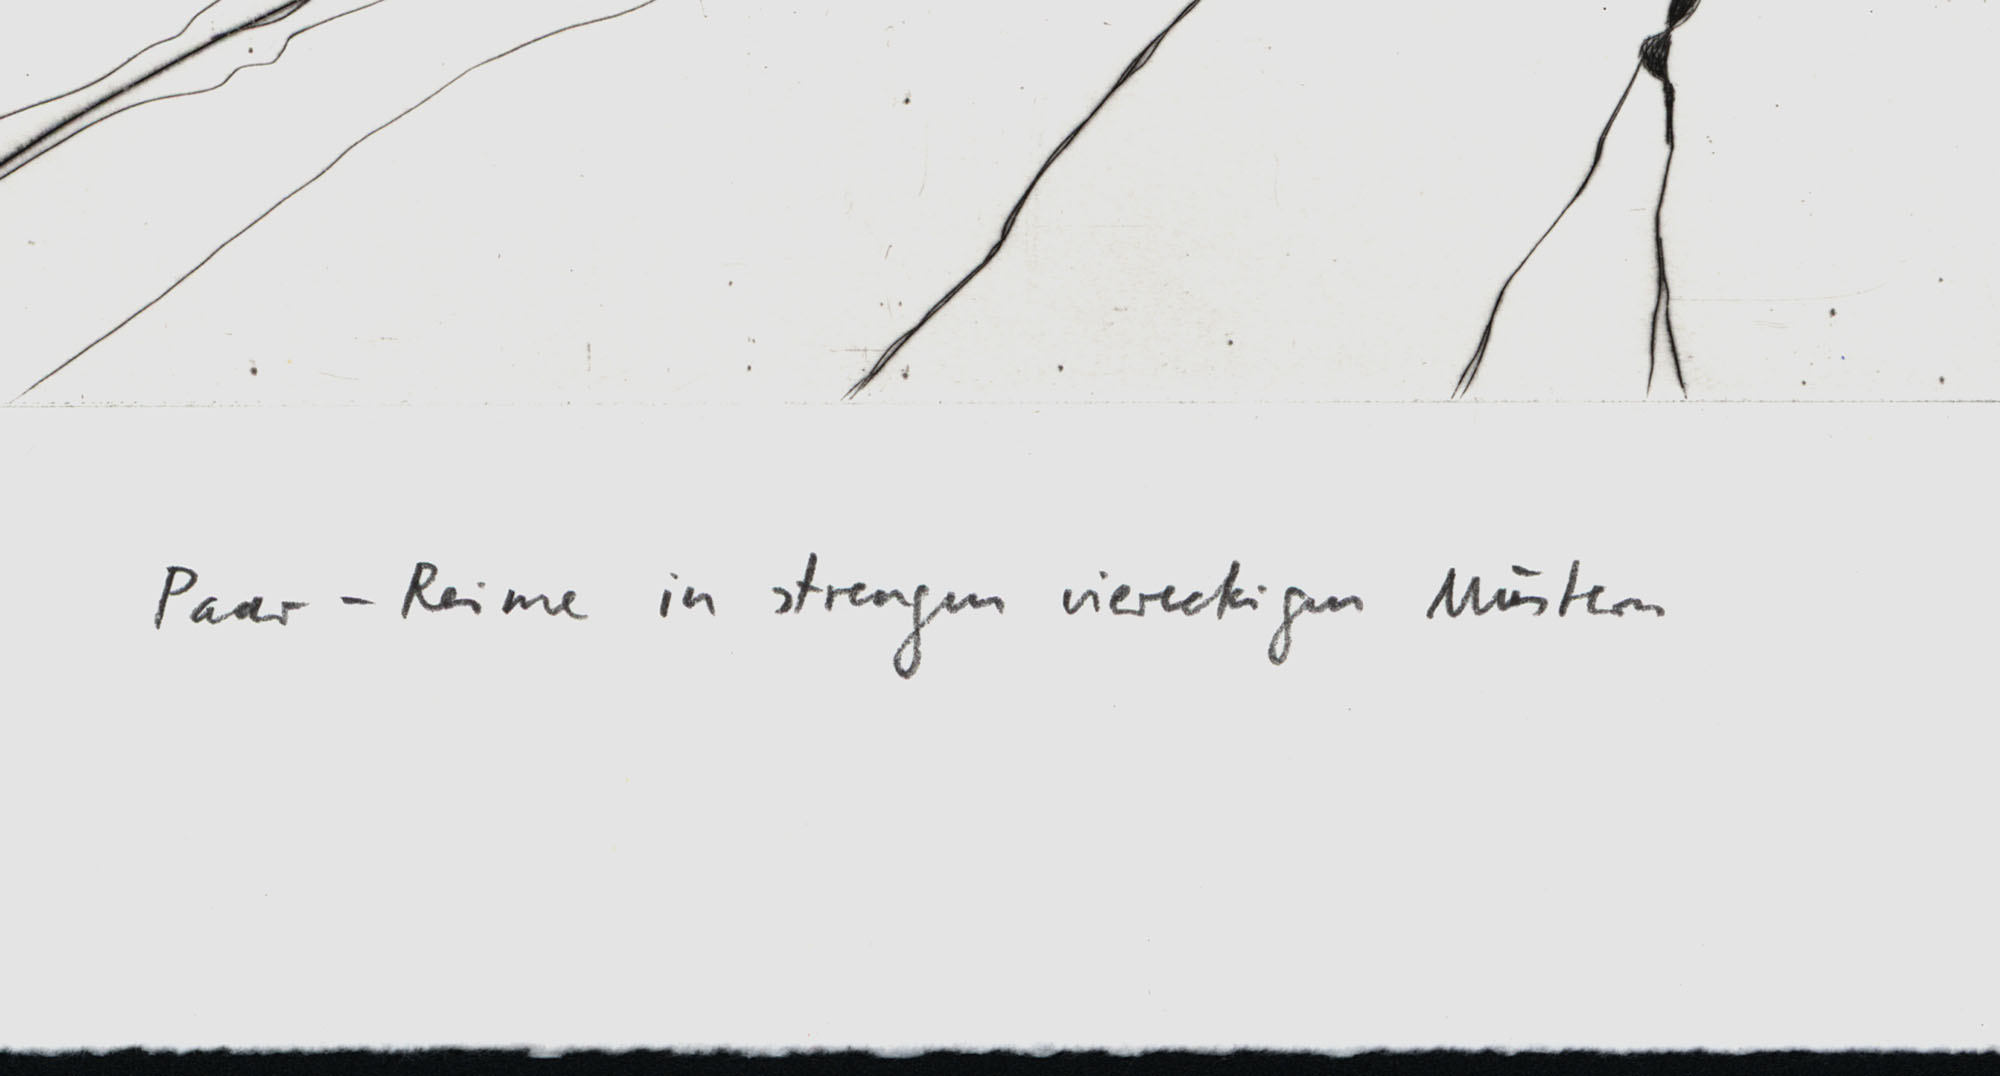 Paar-Reime in strengen viereckigen Mustern